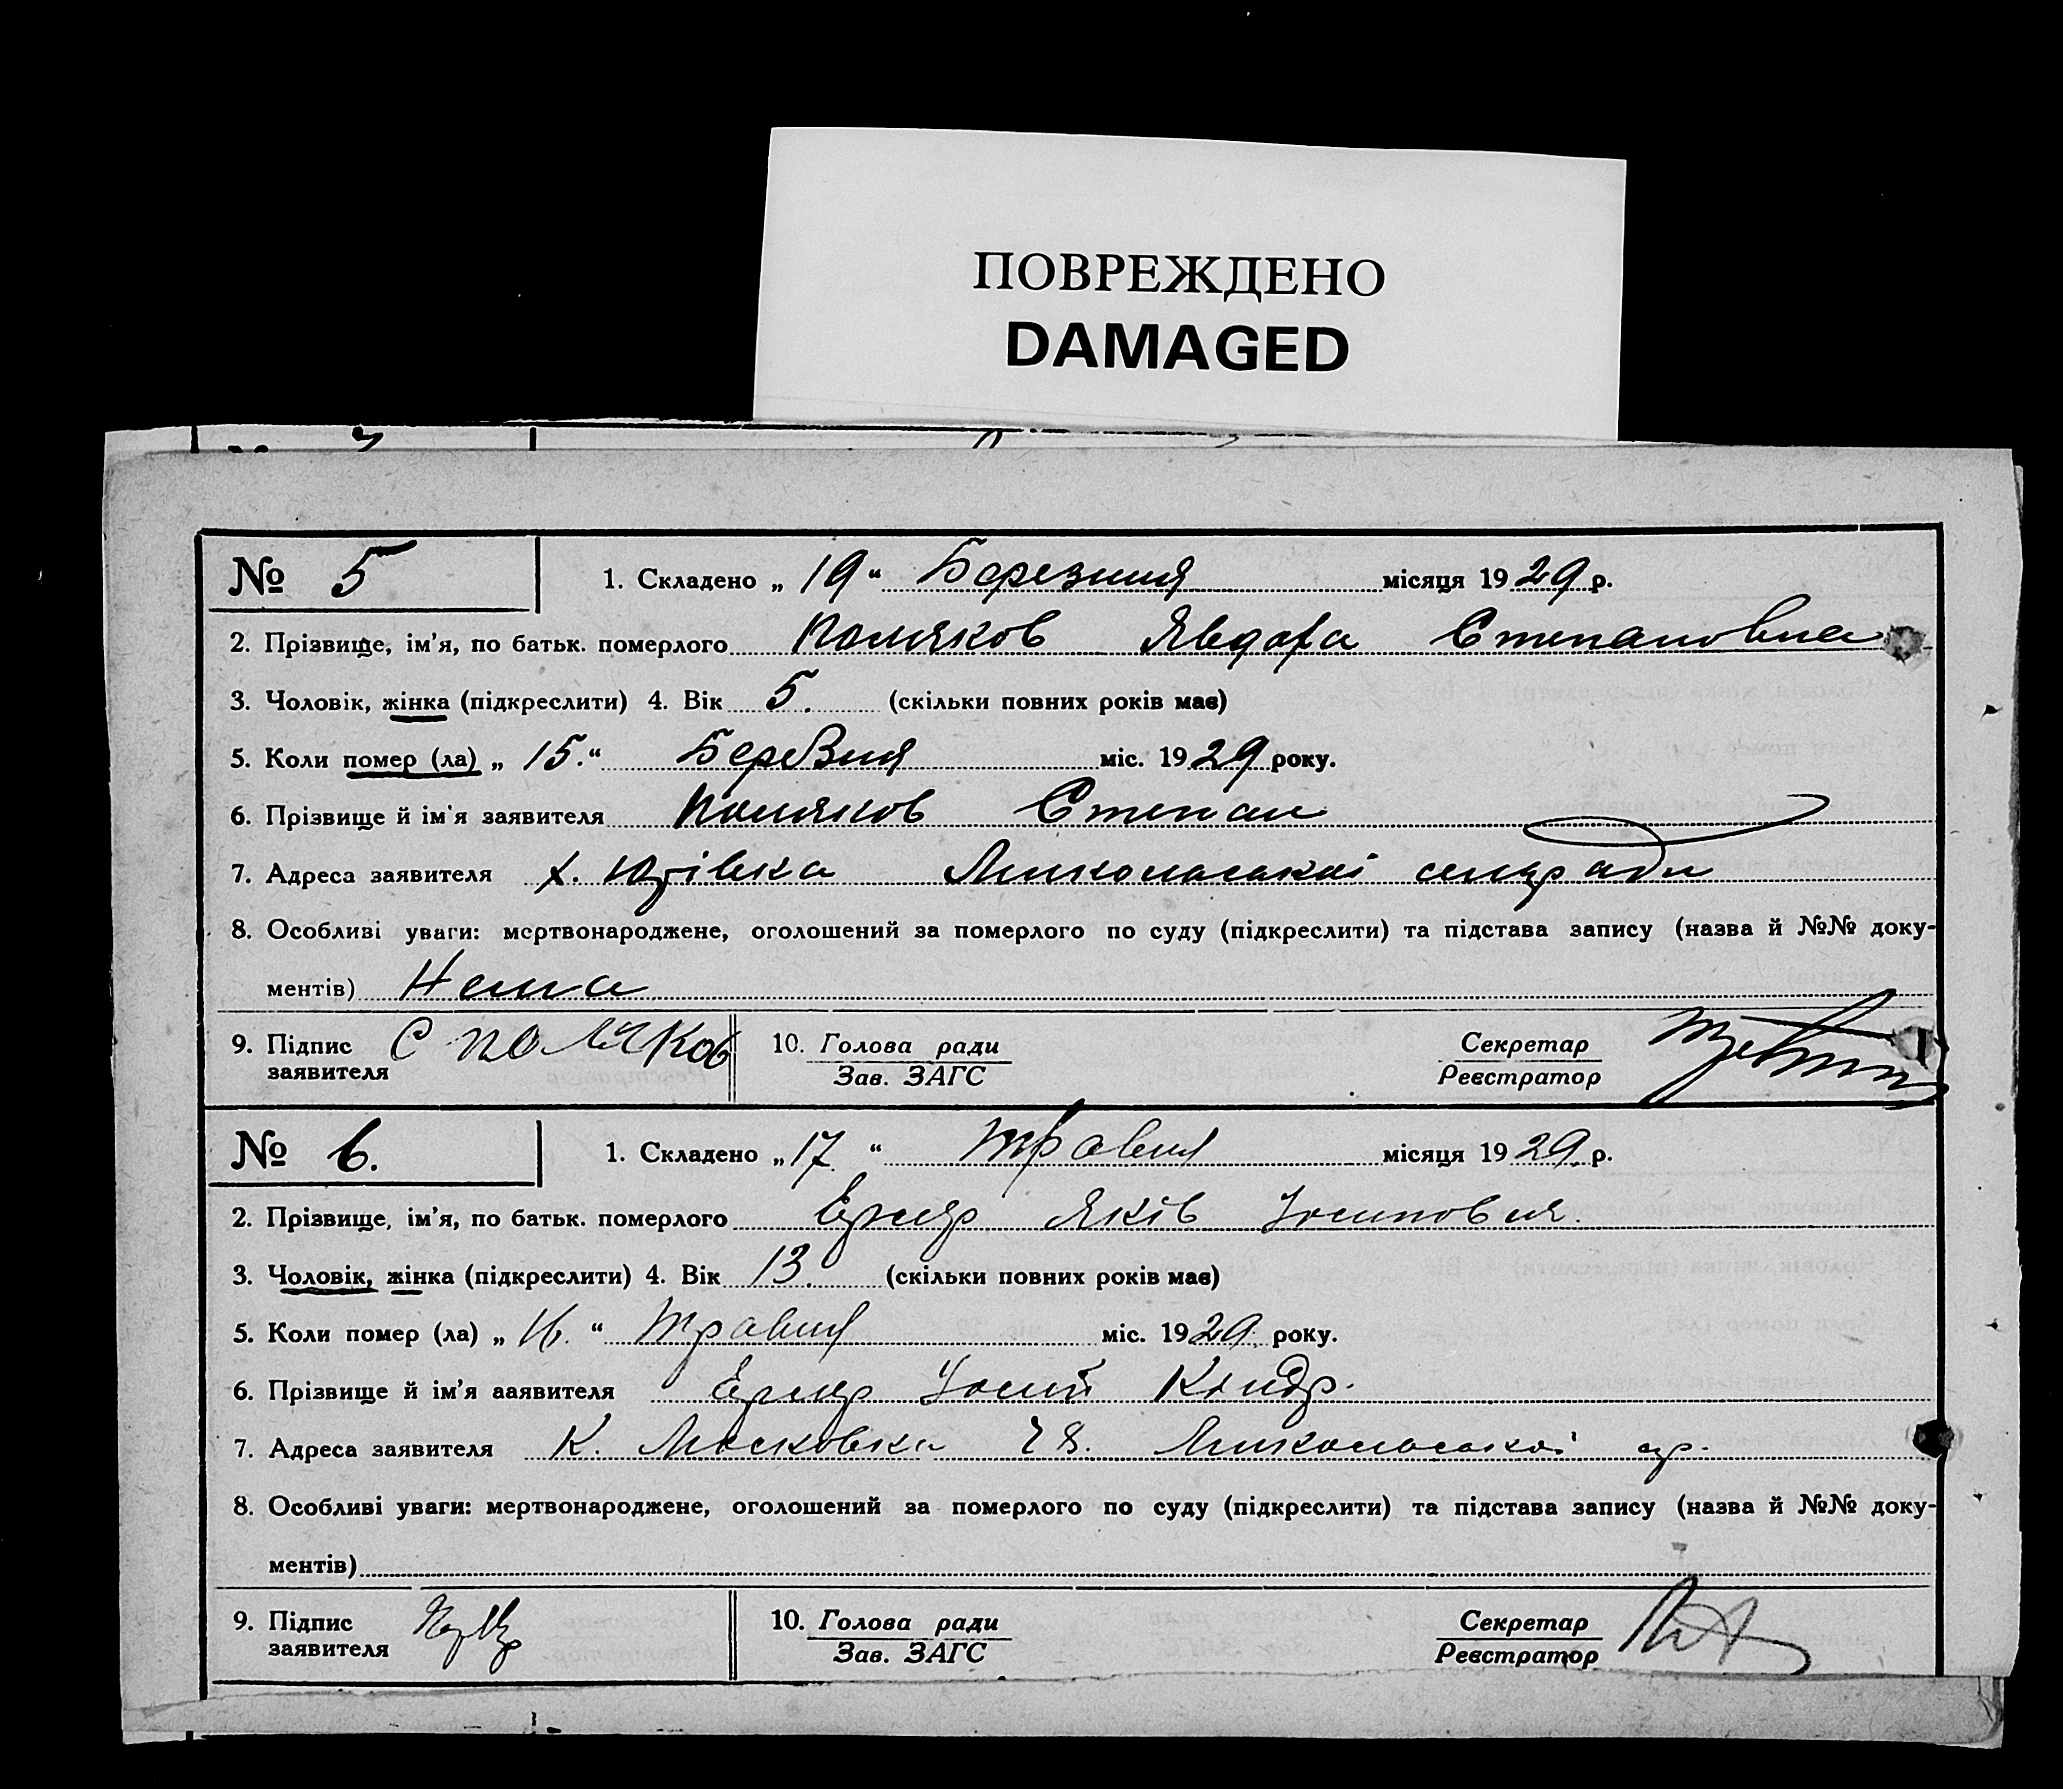 ПОВРЕЖДЕНО
DAMAGED
№ 5
1. Складено „ 19 “ Березния місяця 1929 р.
2. Прізвище, ім'я, по батьк. померлого Поляков Явдоха Степановна
3. Чоловік, жінка (підкреслити) 4. Вік 5. (скільки повних років має)
5. Коли помер (ла) „ 15. “ Березня міс. 1929 року.
6. Прізвище й ім'я заявителя Поляков Степан
7. Адреса заявителя х. Миколаєвської сельради
8. Особливі уваги: мертвонароджене, оголошений за померлого по суду (підкреслити) та підстава запису (назва й №№ доку-
ментів) Нема
9. Підпис заявителя С Поляков 10. Голова ради Зав. ЗАГС Секретар Реєстратор
№ 6.
1. Складено „ 17 “ Травня місяця 1929. р.
2. Прізвище, ім'я, по батьк. померлого Яків Йосипович.
3. Чоловік, жінка (підкреслити) 4. Вік 13. (скільки повних років має)
5. Коли помер (ла) „ 16. “ Травня міс. 1929. року.
6. Прізвище й ім'я заявителя Йосип Кондр.
7. Адреса заявителя К. Московка
8. Особливі уваги: мертвонароджене, оголошений за померлого по суду (підкреслити) та підстава запису (назва й №№ доку-
ментів)
9. Підпис заявителя 10. Голова ради Зав. ЗАГС Секретар Реєстратор